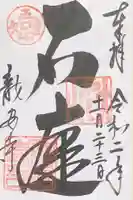 奉拝
令和二年
十一月二十三日
石庭
龍安寺